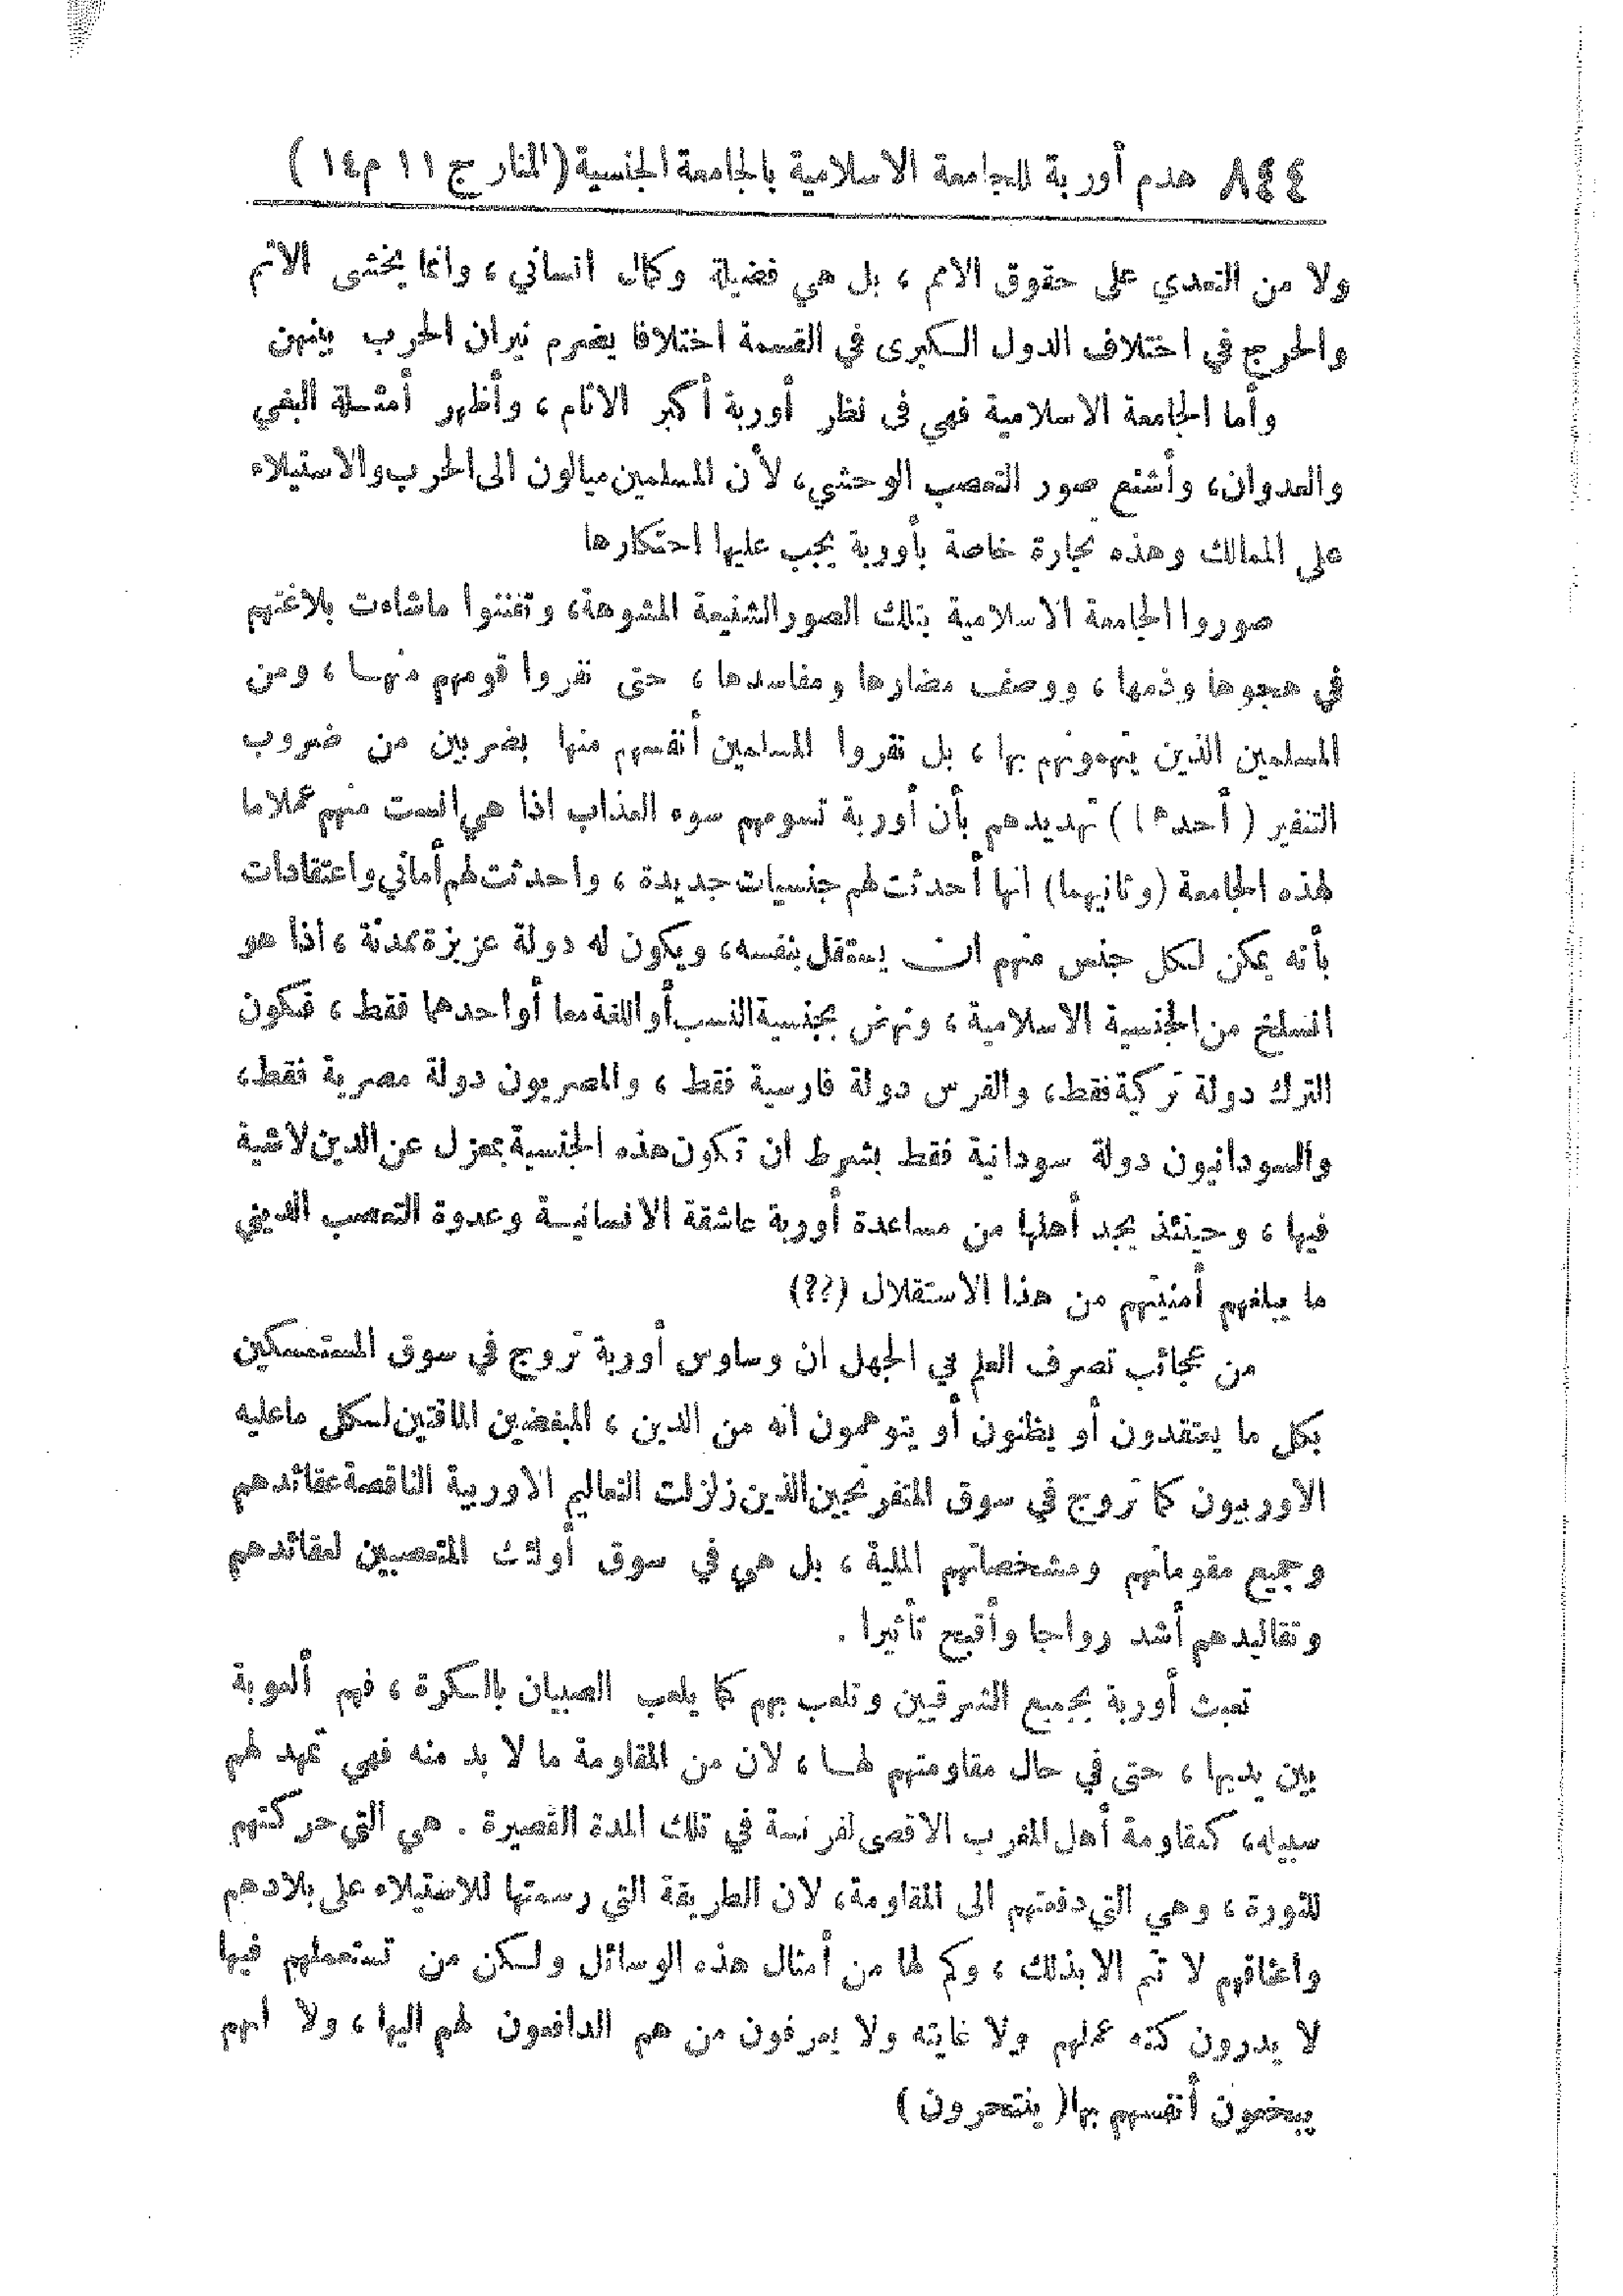 ٨٤٤ هدم أوربة للجامعة الاسلامية بالجامعة الجنسية (المنار ج ١١ م ١٤)
ولا من التعدي على حقوق الامم ، بل هي فضيلة وكمال انساني ، وانما يخشى الاثم
والحرج في اختلاف الدول الكبرى في القسمة اختلافا يضرم نيران الحرب بينهن
وأما الجامعة الاسلامية فهي فى نظر أوربة أكبر الآثام ، وأظهر أمثلة البغي
والعدوان، وأشنع صور التعصب الوحشي، لأن المسلمين ميالون الى الحرب والاستيلاء
على الممالك وهذه تجارة خاصة بأوربة يجب عليها احتكارها
صوروا الجامعة الاسلامية بتلك الصور الشنيعة المشوهة، وتفننوا ماشاءت بلاغتهم
في هجوها وذمها ، ووصف مضارها ومفاسدها ، حتى نفروا قومهم منها ، ومن
المسلمين الذين يتهمونهم بها ، بل نفروا المسلمين أنفسهم منها بضربين من ضروب
التنفير ( أحدها ) تهديدهم بأن أوربة تسومهم سوء العذاب اذا هي انست منهم عملا ما
لهذه الجامعة (وثانيهما) انها أحدثت لهم جنسيات جديدة ، واحدثت لهم أماني واعتقادات
بأنه يمكن لكل جنس منهم ان يستقل بنفسه، ويكون له دولة عزيزة تمدنة ، اذا هو
انسلخ من الجنسية الاسلامية ، ونهض بجنسية النسب أو اللغة معا أو احدهما فقط ، فتكون
الترك دولة تركية فقط، والفرس دولة فارسية فقط ، والمصريون دولة مصرية فقط،
والسودانيون دولة سودانية فقط بشرط ان تكون هذه الجنسية بمعزل عن الدين لاشية
فيها ، وحينئذ يجد أهلها من مساعدة أوربة عاشقة الانسانية وعدوة التعصب الديني
ما يبلغهم أمنيتهم من هذا الاستقلال (؟؟)
من عجائب تصرف العلم في الجهل ان وساوس أوربة تروج في سوق المستمسكين
بكل ما يعتقدون أو يظنون أو يتوهمون انه من الدين ، المبغضين الماقتين لكل ماعليه
الاوربيون كما تروج في سوق المتفرنجين الذين زلزلت التعاليم الاوربية الناقصة عقائدهم
وجميع مقوماتهم ومشخصاتهم الملية ، بل هي في سوق أولئك المتعصبين لعقائدهم
وتقاليدهم أشد رواجا وأقبح تأثيرا .
تعبث أوربة بجميع الشرقيين وتلعب بهم كما يلعب الصبيان بالكرة ، فهم ألعوبة
بين يديها ، حتى في حال مقاومتهم لها ، لان من المقاومة ما لا بد منه فهي تمهد لهم
سبيله، كمقاومة أهل المغرب الاقصى لفرنسة في تلك المدة القصيرة . هي التي حركتهم
للثورة ، وهي التي دفعتهم الى المقاومة، لان الطريقة التي رسمتها للاستيلاء على بلادهم
واعناقهم لا تتم الا بذلك ، وكم لها من أمثال هذه الوسائل ولكن من تستعملهم فيها
لا يدرون كنه عملهم ولا غايته ولا يعرفون من هم الدافعون لهم اليها ، ولا انهم
يبخعون أنفسهم بها ( ينتحرون )